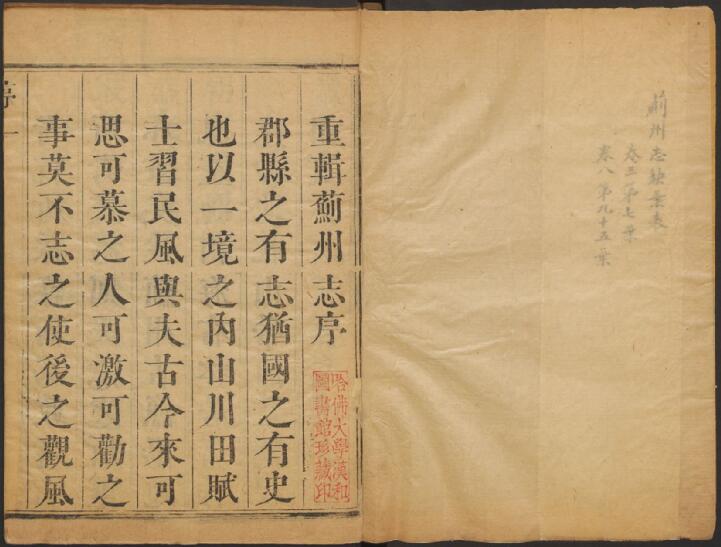 薊州志缺葉表
卷三第七葉
卷八第九十五葉
重輯薊州志序
哈佛大學漢和
圖書館珍藏印
郡縣之有志猶國之有史
也以一境之內山川田賦
士習民風與夫古今來可
思可慕之人可激可勸之
事莫不志之使後之觀風
序 一